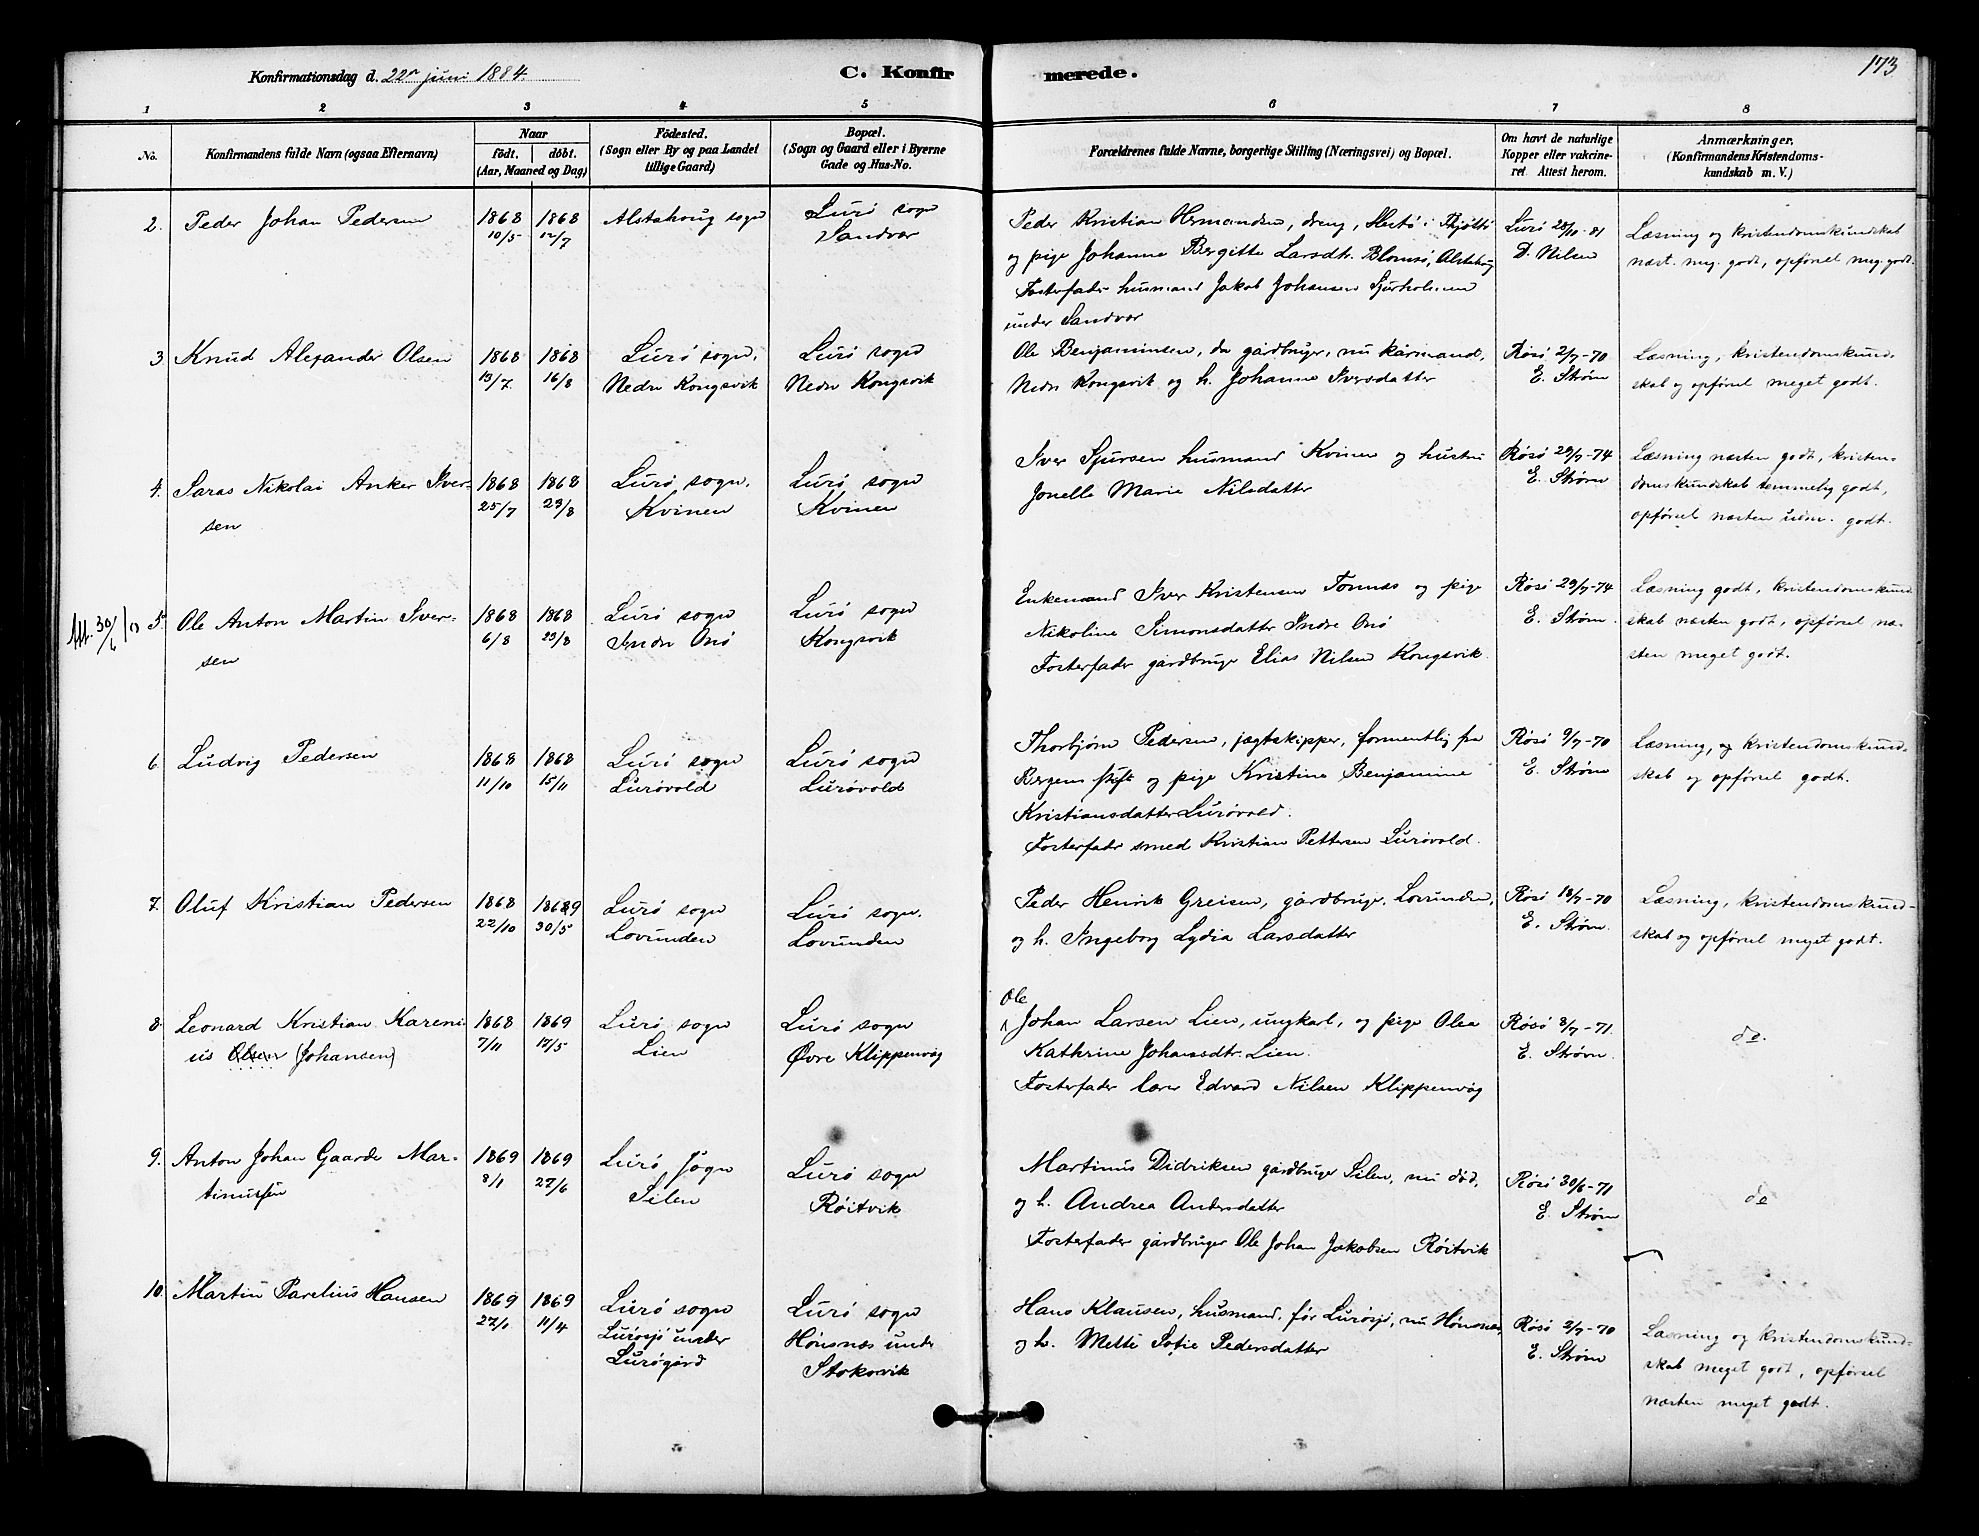 173
Konfirmationsdag d. 22de juni 1884.
C. Konfirmerede.
1 2 3 4 5 6 7 8
No.
Konfirmandens fulde Navn (ogsaa Efternavn)
Naar
födt. döbt.
(Aar, Maaned og Dag)
Födested.
(Sogn eller By og paa Landet
tillige Gaard)
Bopæl.
(Sogn og Gaard eller i Byerne
Gade og Hus-No.
Forældrenes fulde Navne, borgerlige Stilling (Næringsvei) og Bopæl.
Om havt de naturlige
Kopper eller vakcine-
ret. Attest herom.
Anmærkninger.
(Konfirmandens Kristendoms-
kundskab m. V.)
2. Peder Johan Pedersen
1868 10/5
1868 12/7
Alstahoug sogn
Lurö sogn
Sandvær
Peder Kristian Hermandsen, dreng, i Thjøttö
og pige Johanne Bergitte Larsdtr. Blomsö, Alstahoug
Fosterfader husmand Jakob Johansen Sjurholmen
under Sandvær
Lurö 28/10-81
D. Nilsen
Læsning og kristendomskundskab
næst. meg. godt, opførsel meg. godt.
3 Knud Alexander Olsen
1868 19/7
1868 16/8
Lurö sogn,
Nedre Kongsvik
Lurö sogn
Nedre Kongsvik
Ole Benjaminsen, da gårdbruger, nu kårmand,
Nedre Kongsvik og h. Johanne Iversdatter
Røsö 2/7-70
E. Strøm
Læsning, kristendomskund-
skab og opførsel meget godt.
4. Saras Nikolai Anker Iver-
sen
1868 25/7
1868 23/8
Lurö sogn.
Kvinen
Lurö sogn
Kvinen
Iver Sjursen husmand Kvinen og hustru
Jonelle Marie Nilsdatter
Røsö 29/7-74
E. Strøm
Læsning næsten godt, kristen-
domskundskab temmelig godt,
opførsel næsten udm. godt.
Att. 30/6 10
5. Ole Anton Martin Iver-
sen
1868 6/8
1868 23/8
Lurö sogn
Indre Onö
Lurö sogn
Kongsvik
Enkemand Iver Kristensen Tonnes og pige
Nikoline Simonsdatter Indre Onö
Fosterfader gårdbruger Elias Nilsen Kongsvik
Røsö 29/7-74
E. Strøm.
Læsning godt, kristendomskund-
skab næsten godt, opførsel næ-
sten meget godt.
6. Ludvig Pedersen
1868 11/10
1868 15/11
Lurö sogn
Lurövold
Lurö sogn
Lurövold
Thorbjörn Pedersen, jægtskipper, formentlig fra
Bergens stift og pige Kristine Benjamine
Kristiansdatter Lurövold.
Fosterfader smed Kristian Pettersen Lurövold.
Røsö 9/7-70
E. Strøm
Læsning, og kristendomskund-
skab og opførsel godt.
7. Oluf Kristian Pedersen
1868 22/10
1869 30/5
Lurö sogn
Lovunden
Lurö sogn.
Lovunden
Peder Henrik Greisen, gårdbruger, Lovunden,
og h. Ingeborg Lydia Larsdatter
Røsö 18/7-70
E. Strøm.
Læsning, kristendomskund-
skab og opførsel meget godt.
8. Leonard Kristian Kareni-
us Olsen (Johansen)
1868 7/11
1869 17/5
Lurö sogn
Lien
Lurö sogn
Øvre Klippenvåg
Ole
Johan Larsen Lien, ungkarl, og pige Olea
Kathrine Johansdtr. Lien.
Fosterfader lærer Edvard Nilsen Klippenvåg
Røsö 3/7-71.
E. Strøm.
do.
9. Anton Johan Gaarde Mar-
tinussen
1869 8/1
1869 27/6
Lurö sogn
Silen
Lurö sogn
Röitvik
Martinus Didriksen gårdbruger Silen, nu död,
og h. Andrea Andersdatter
Fosterfader gårdbruger Ole Johan Jakobsen Röitvik
Røsö 30/6-71
E. Strøm
do
10. Martin Parelius Hansen
1869 27/1
1869 11/4
Lurö sogn
Lurösjö under
Lurögård
Lurö sogn
Hönsnæs under
Stokvik
Hans Klausen, husmand, för Lurösjö, nu Hönsnæs,
og h. Mette Sofie Pedersdatter
Røsö 2/7-70
E. Strøm
Læsning og kristendomskund-
skab meget godt, opførsel
næsten meget godt.